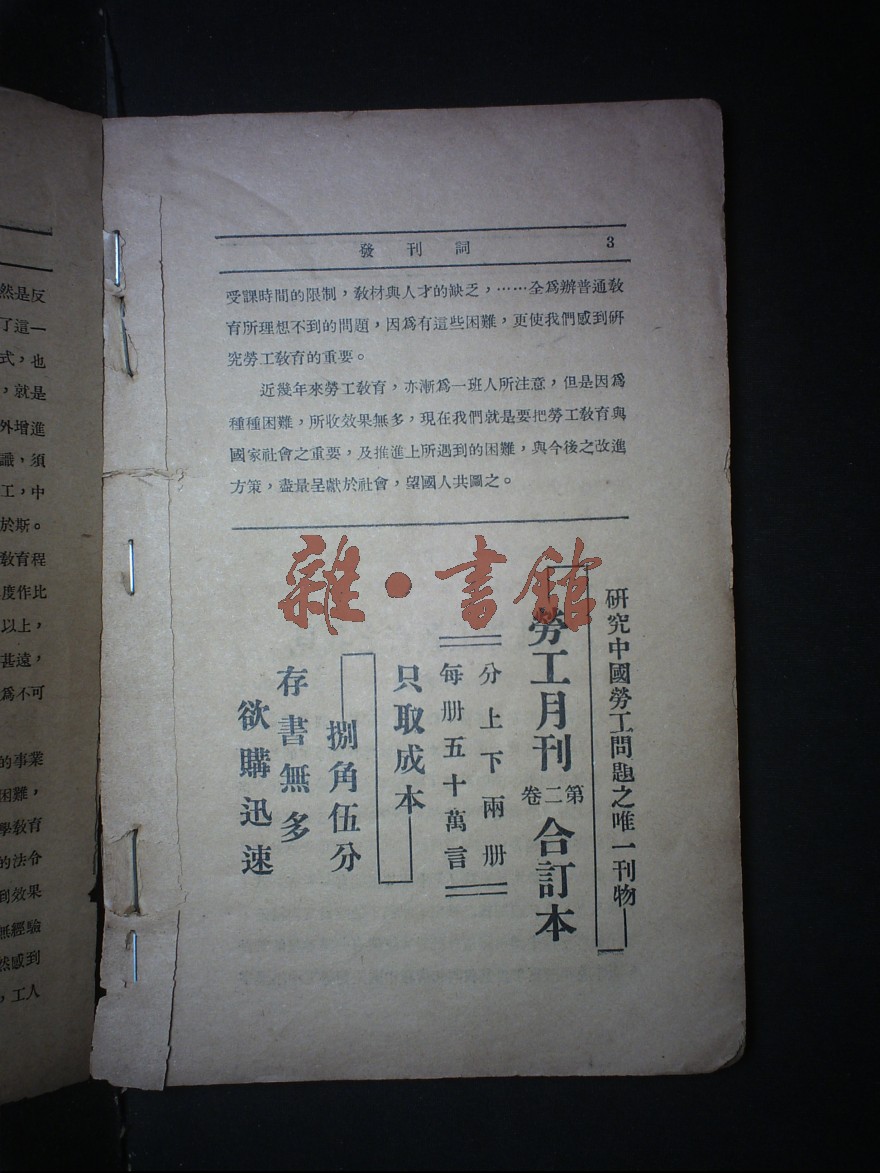 發刊詞 3
受課時間的限制，教材與人才的缺乏，……全爲辦普通教
育所理想不到的問題，因爲有這些困難，更使我們感到研
究勞工教育的重要。
近幾年來勞工教育，亦漸爲一班人所注意，但是因爲
種種困難，所收效果無多，現在我們就是要把勞工教育與
國家社會之重要，及推進上所遇到的困難，與今後之改進
方策，盡量呈獻於社會，望國人共圖之。
研究中國勞工問題之唯一刊物
勞工月刊第二卷合訂本
分上下兩册
每册五十萬言
只取成本
捌角伍分
存書無多
欲購迅速
雜·書館
然是反
了這一
式，也
，就是
外增進
識，須
工，中
於斯。
教育程
度作比
以上，
甚遠，
爲不可
的事業
困難，
學教育
的法令
到效果
無經驗
然感到
，工人